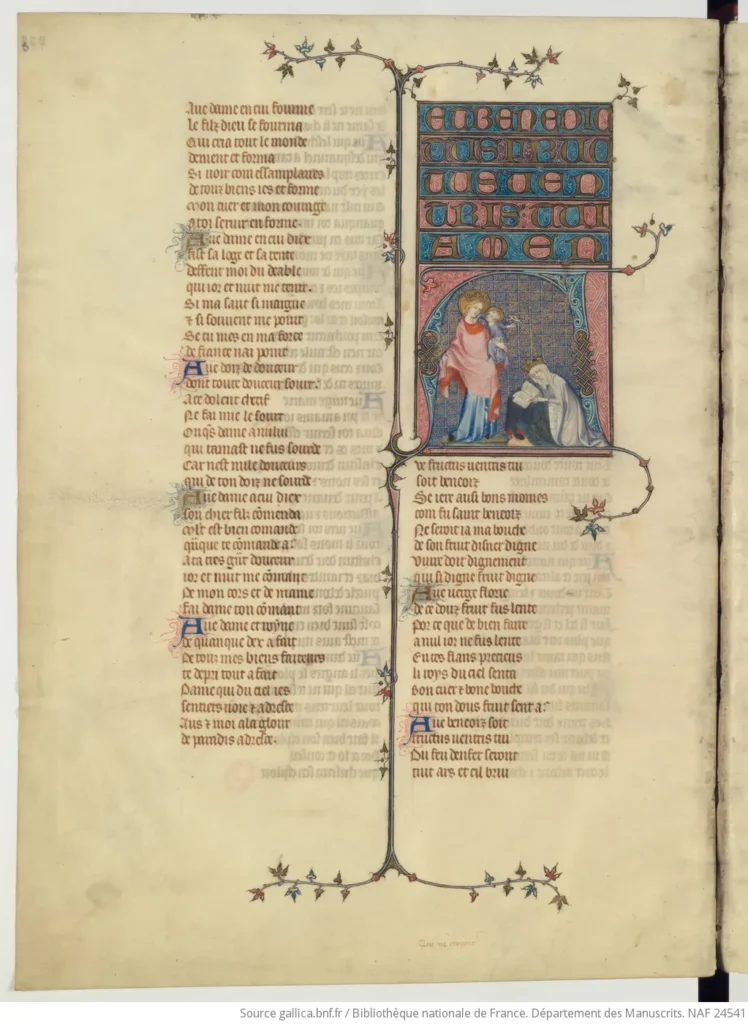 Aue dame en cui fourme
le filz dieu se fourma
Qui cria tout le monde
deuient et forma
Si uoir com essamplaires
de touz biens ies et forme
Mon cuer et mon courage
a toi seruir enforme.
Aue dame en cui diex
fist sa loge et sa tente
deffent moi du deable
qui ior et nuit me tente.
Si ma saut si
⁊ si souuent me point
Se tu mes en ma force
de fiance nai point
Aue doiz de douceur
dont toute douceur sourt.
A ce dolent chetif
Ne fai mie le sourt
Onq̄s dame a nului
qui tamast ne fus sourde
Car nest nule douceurs
qui de ton doiz ne sourde
Aue dame a cui diex
son chier filz cōmenda
cilz est bien comande
quique te cōmanda.
A ta tres grāt douceur
ior et nuit me cōmant
De mon cors et de mame
Fai dame ton cōmant
Aue dame et royne
de quanque dex a fait
De touz mes biens faiteurs
te depri tout a fait
Dame qui du ciel ies
sentiers uoie ⁊ adresce
Aus ⁊ moi a la gloire
de paradis adresce.
ET BENEDIC
TUS FRUC
TUS UEN
TRIS TUI
AMEN
A
ve fructus uentris tui
soit beneoiz
Se iere ausi bons moines
com fu saint beneoiz
Ne seroit ia ma bouche
de son fruit disner digne
Viure doit dignement
qui si digne fruit digne
Aue uierge florie
de ce douz fruit fus lente
Por ce que de bien faire
a nul ior ne fus lente
En tes flans precieus
li roys du ciel senta
Bon cuer ⁊ bone bouche
qui ton dous fruit sent a.
Aue beneoiz soit
fructus uentris tui
Du feu denfer seront
tuit ars et cil brui
Source gallica.bnf.fr / Bibliothèque nationale de France. Département des Manuscrits. NAF 24541